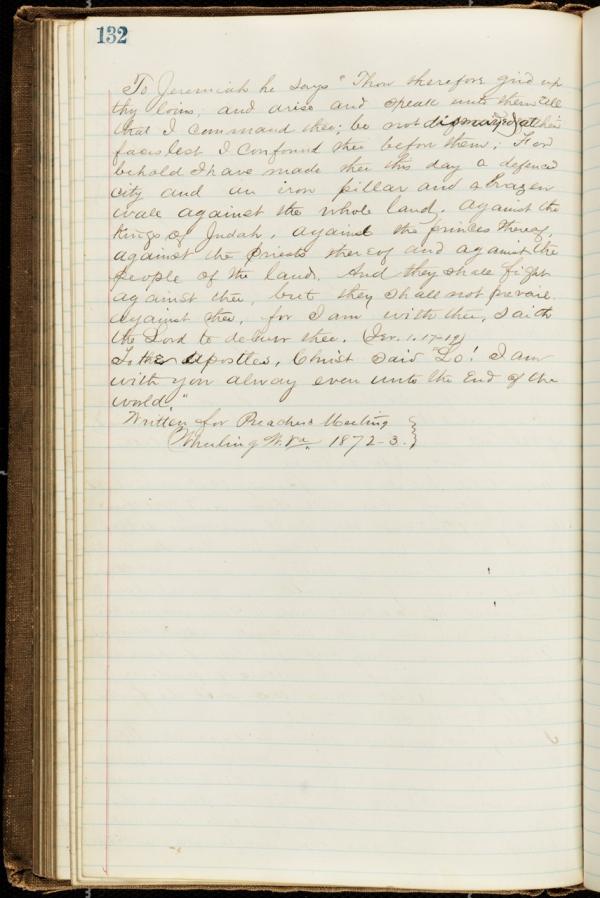 132
To Jeremiah he says "Thou therefore gird up
thy loins, and arise and speak unto them all
that I command thee; be not dismayed at their
faces lest I confound thee before them; For
behold I have made thee this day a defenced
city and an iron pillar and a brazen
walls against the whole land, against the
Kings of Judah, against the princes thereof,
against the Priests thereof and against the
people of the land. And they shall fight
against thee, but they shall not prevail
against thee, for I am with thee, saith
the Lord to deliver thee. (Jer. 1. 17-19)
To the Apostles, Christ said "Lo! I am
with you alway even unto the End of the
world."
Written for Preachers Meeting
Wheeling W. Va. 1872-3.}